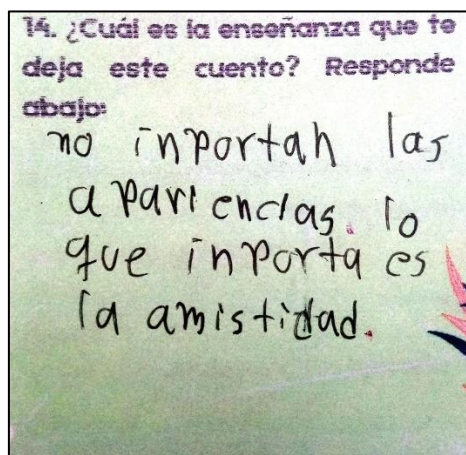 14. ¿Cuál es la enseñanza que te
deja este cuento? Responde
abajo:
no inportan las
apariencias. lo
que inporta es
la amistidad.